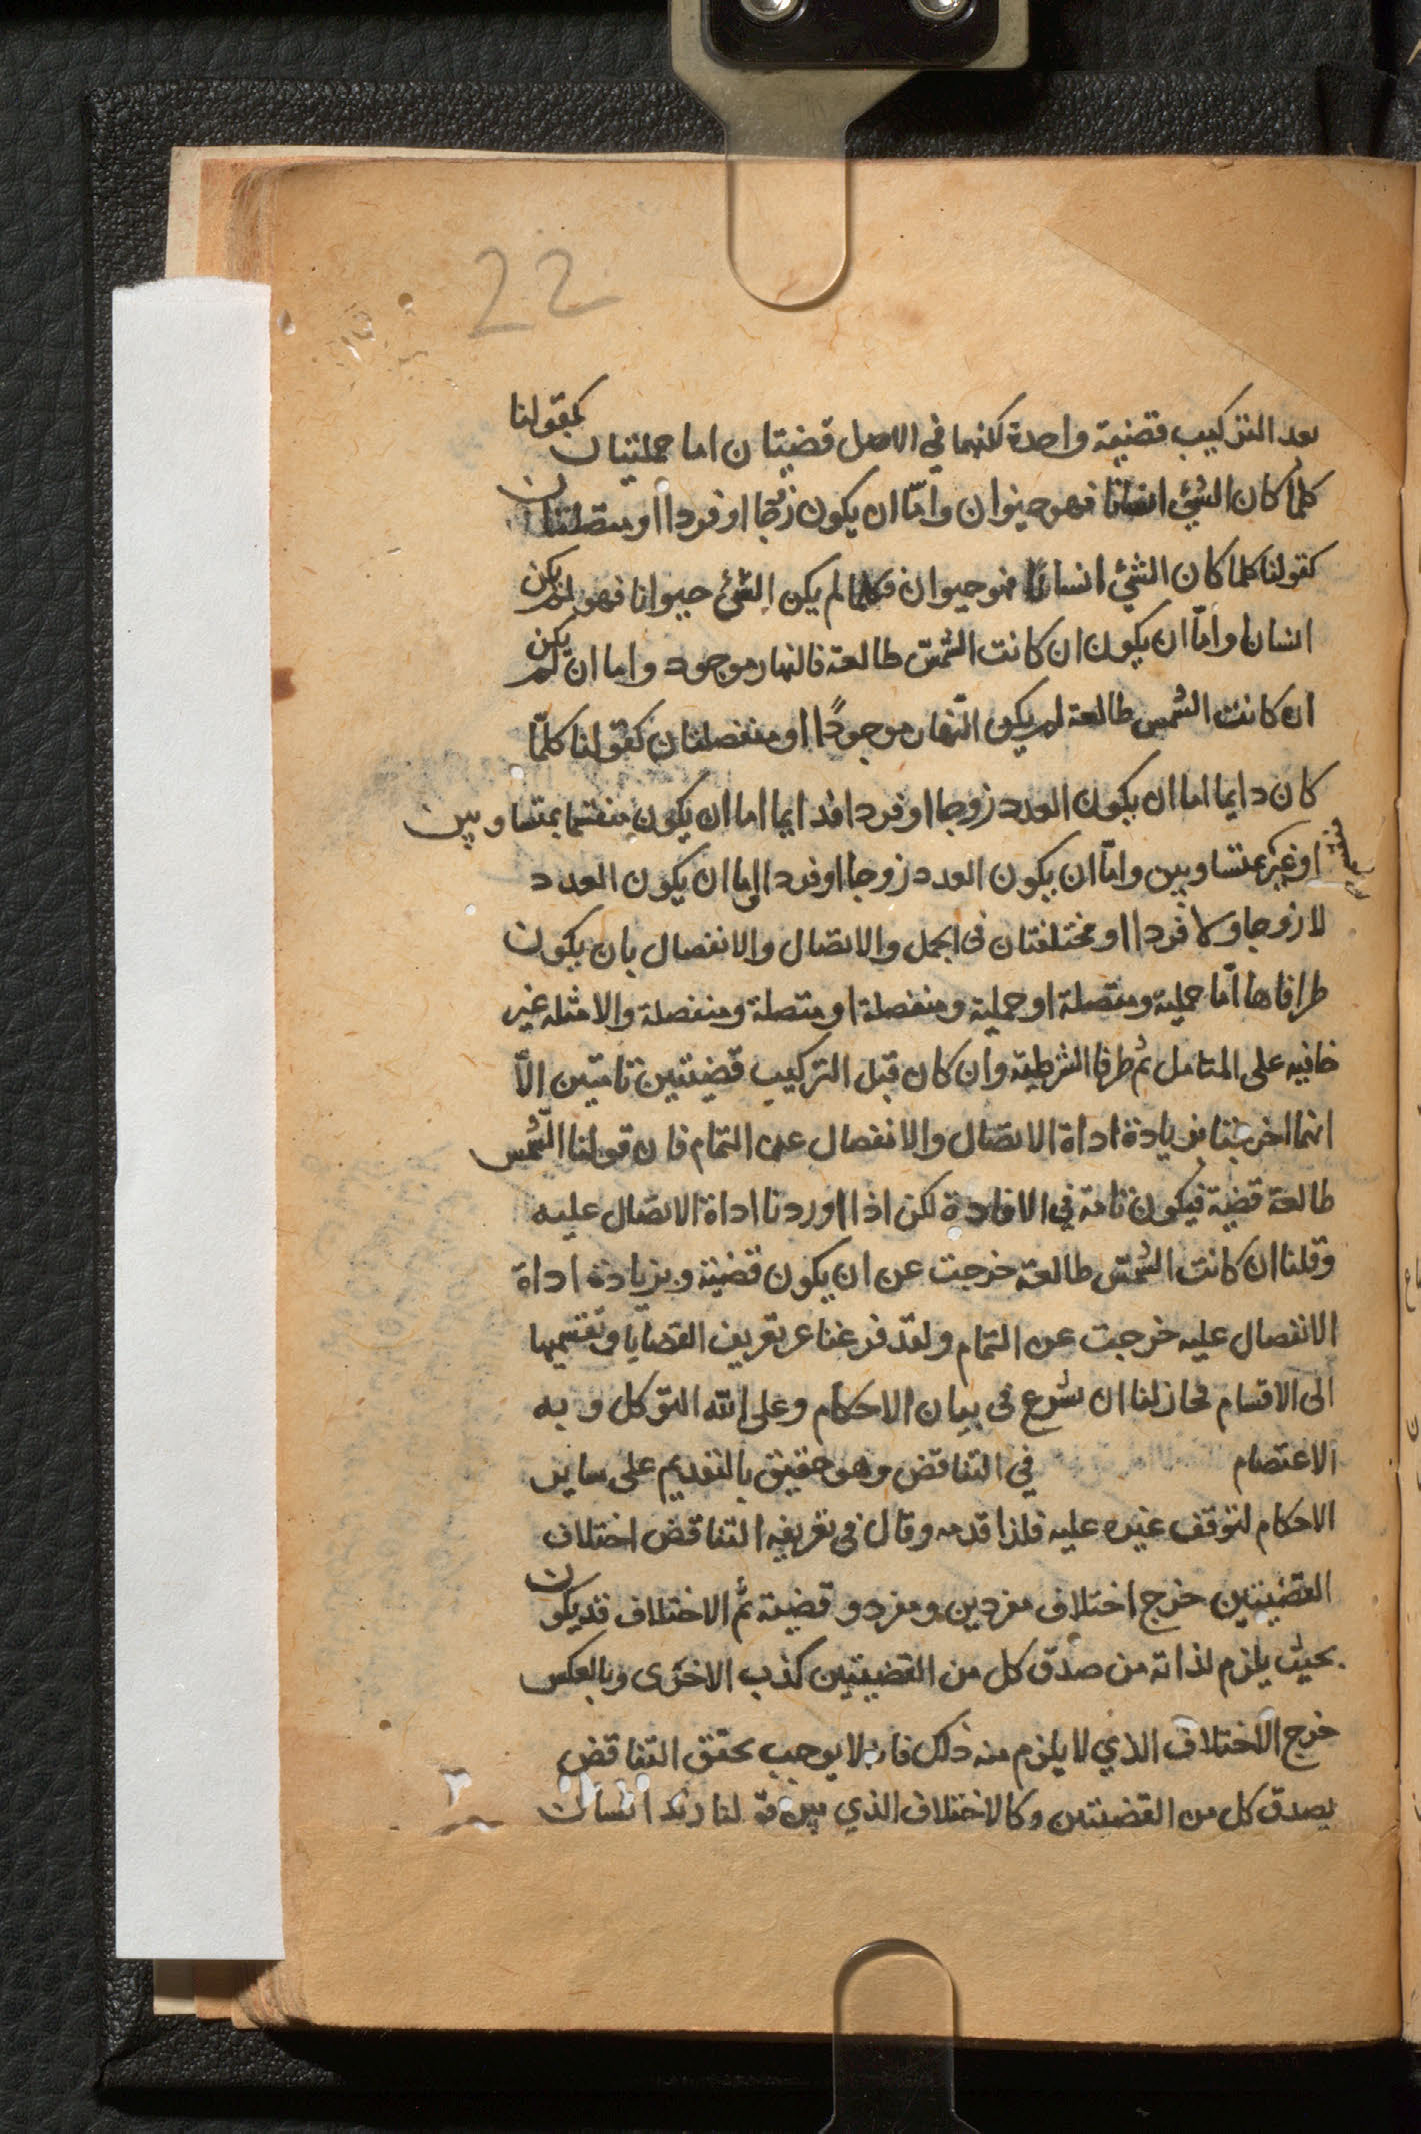 22
بعد التركيب قضية واحدة لكنهما في الاصل قضيتان اما حمليتان كقولنا
كلما كان الشئ انسانا فهو حيوان وامّا ان يكون زوجا او فردا او متصلتان
كقولنا كلما كان الشئ انسانا فهو حيوان فكلما لم يكن الشئ حيوانا فهو لم يكن
انسانا وامّا ان يكون ان كانت الشمس طالعة فالنهار موجود واما ان لم يكن
ان كانت الشمس طالعة لم يكن النّهار موجودًا او منفصلتان كقولنا كلمّا
كان دايما اما ان يكون العدد زوجا او فردا فدايما اما ان يكون منقسما بمتساويين
او غير متساويين وامّا ان يكون العدد زوجا او فردا واما ان يكون العدد
لا زوجا ولا فردا او مختلفتان فى الحمل والاتصال والانفصال بان يكون
طرفاها امّا حملية ومتصلة او حملية ومنفصلة او متصلة ومنفصلة والامثله غير
خافيه على المتامل ثم طرفا الشرطية وان كان قبل التركيب قضيتين تامتين الاّ
انهما اخرجتا بزيادة اداة الاتصال والانفصال عن التمام فان قولنا الشّمس
طالعة قضية فيكون تامة في الافادة لكن اذا اوردنا اداة الاتصال عليه
وقلنا ان كانت الشمس طالعة خرجت عن ان يكون قضية وبزيادة اداة
الانفصال عليه خرجت عن التمام ولقد فرغنا عن تعريف القضايا وتقسيمها
الى الاقسام فحاز لنا ان نشرع فى بيان الاحكام وعلى الله التوكل وبه
الاعتصام في التناقض وهو حقيق بالتقديم على ساير
الاحكام لتوقف غيره عليه فلذا قدمه وقال فى تعريفه التناقض اختلاف
القضيتين خرج اختلاف مفردين ومفرد وقضية ثم الاختلاف قد يكون
بحيث يلزم لذاته من صدق كل من القضيتين كذب الاخرى وبالعكس
خرج الاختلاف الذي لا يلزم منه ذلك فانه لا يوجب تحقق التناقض
بصدق كل من القضيتين وكالاختلاف الذي بين قولنا زيد انسان